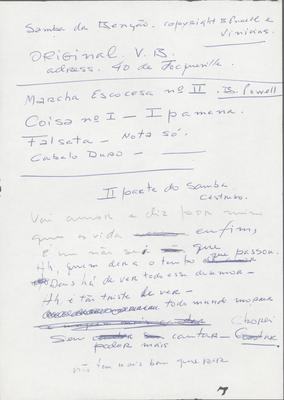 Samba da Benção. copyright B Powell e
Vinicius.
ORIGINAL. V. B.
adress. 40 de
Marcha Escocesa nº II. B. Powell
Coisa nº I — Ipamena.
Falsata — Nota só.
Cabalo Duro —
II parte do Samba
Vai amor e diz por mim
que a vida enfim,
É um não sei que
Ah, quem dera o tempo que passou.
Deus há de ver todo esse desamor —
Ah é tão triste de ver —
todo mundo
Sem cantar —
poder mais
não tem mais bem que
7